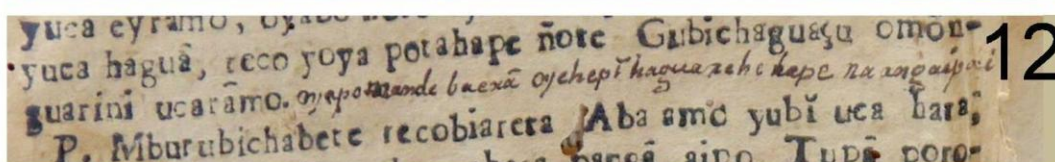 yuca eyramo,
12
yuca haguã, reco yoya potahape ñote Gubichaguaçu omôn-
guarini ucarãmo. oyepo mande baerã oyehepĭ haguarehe hape na angaipai
P. Mburubichabete recobiareta Aba amo yubĭ uca hara;
aipo Tupã poro-